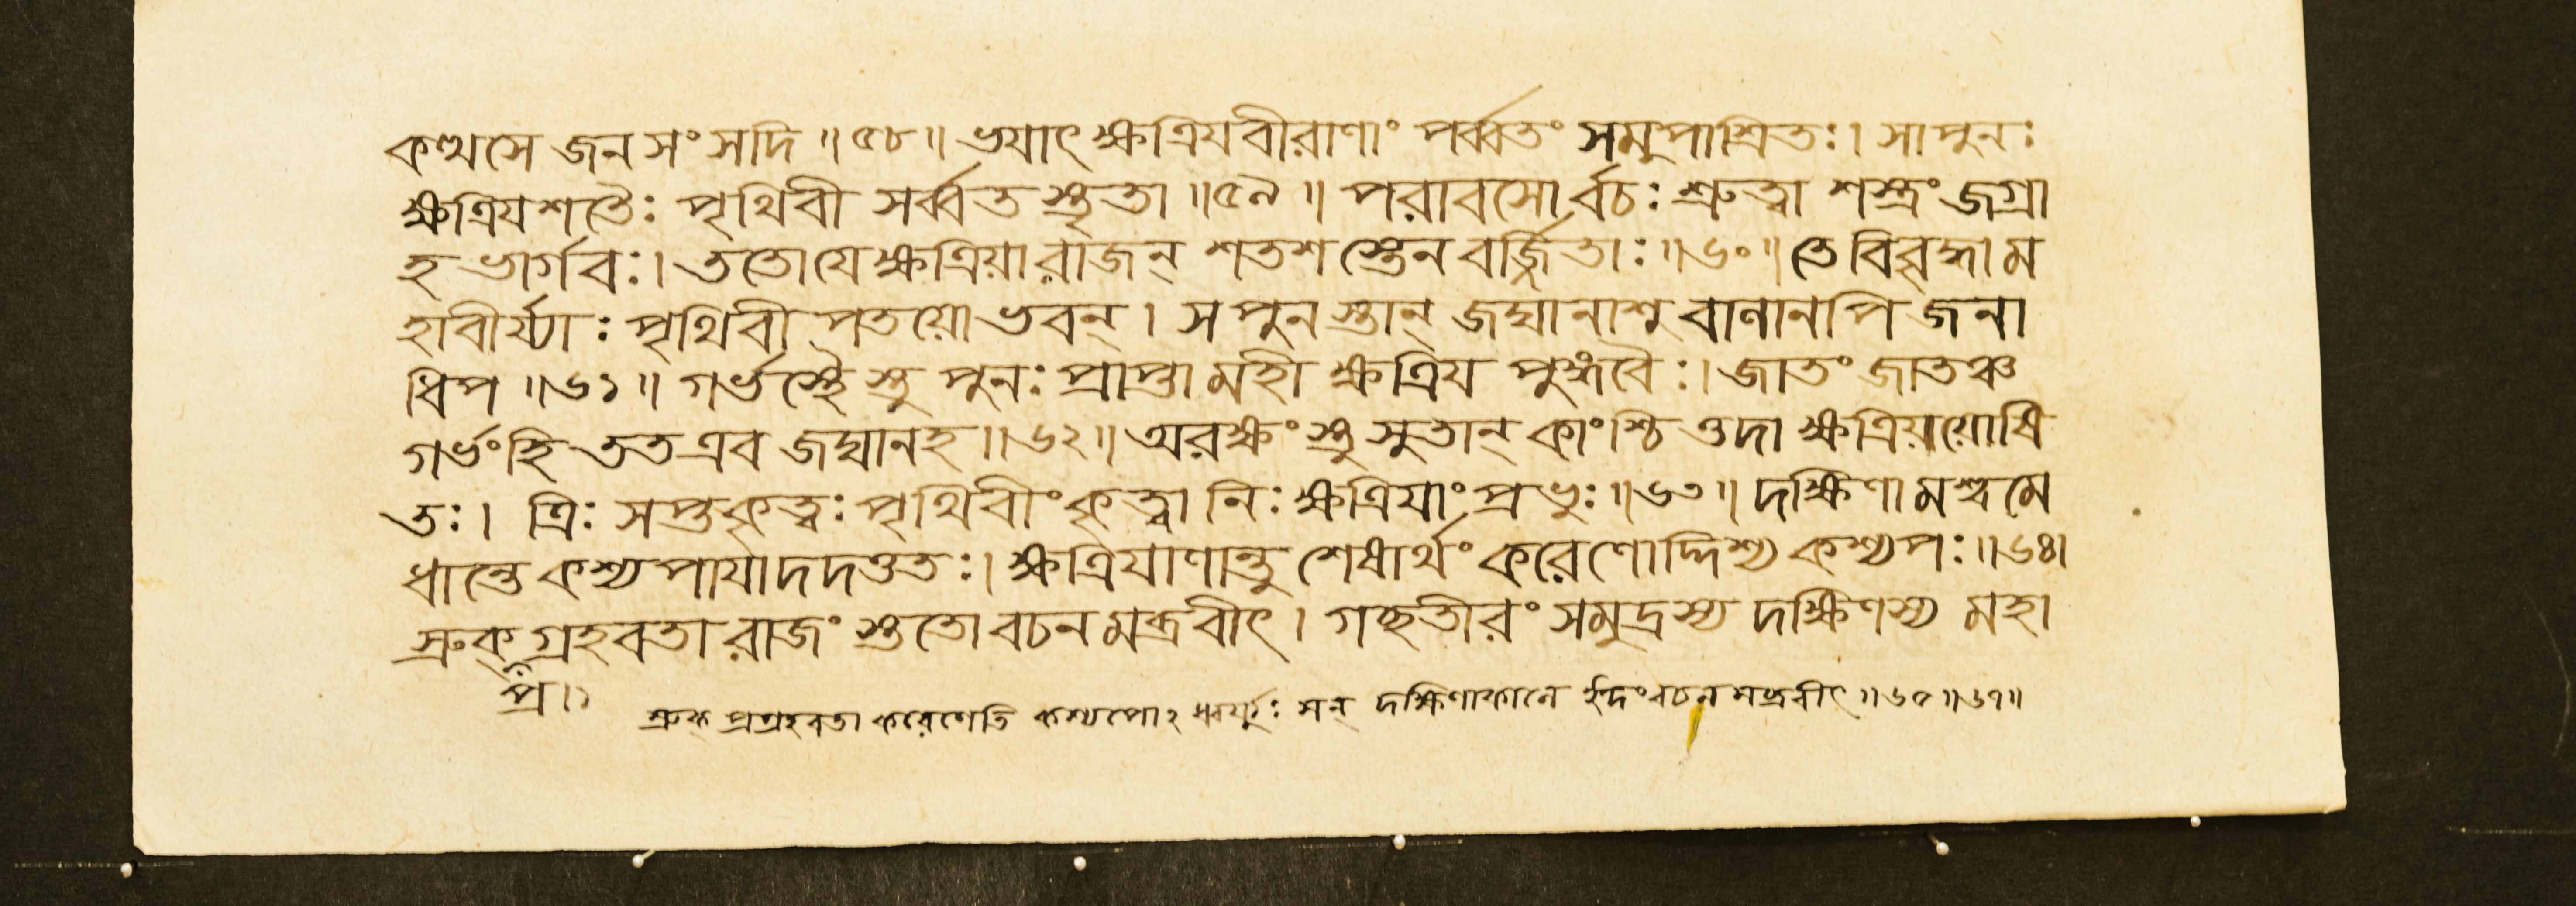 কত্থসে জনসংসদি ॥৫৮॥ ভযাৎ ক্ষত্রিযবীরাণাং পর্ব্বতং সমুপাশ্রিতঃ। সা পুনঃ
ক্ষত্রিযশতৈঃ পৃথিবী সর্ব্বতস্তৃতা ॥৫৯॥ পরাবসোর্বচঃ শ্রুত্বা শস্ত্রং জগ্রা
হ ভার্গবঃ। ততো যে ক্ষত্রিয়া রাজন্ শতশস্তেন বর্জ্জিতাঃ ॥৬০॥ তে বিবৃদ্ধা ম
হাবীর্য্যাঃ পৃথিবীপতয়োভবন্। স পুনস্তান্ জঘানাশু বাণানপি জনা
ধিপ ॥৬১॥ গর্ভস্থৈস্তু পুনঃ প্রাপ্তা মহী ক্ষত্রিয পুঙ্গবৈঃ। জাতং জাতঞ্চ
গর্ভংহি তত এব জঘানহ ॥৬২॥ অরক্ষংস্তু সুতান্ কাংশ্চিত্তদা ক্ষত্রিয়য়োষি
তঃ। ত্রিঃ সপ্তকৃত্বঃ পৃথিবীং কৃত্বা নিঃক্ষত্রিযাং প্রভুঃ ॥৬৩॥ দক্ষিণামশ্বমে
ধান্তে কশ্যপাযাদদত্ততঃ। ক্ষত্রিযাণান্তু শেষার্থং করেণোদ্দিশ্য কশ্যপঃ ॥৬৪।
স্রুক্ গ্রহবতা রাজংস্ততো বচনমব্রবীৎ। গচ্ছ তীরং সমুদ্রস্য দক্ষিণস্য মহা
প্র।১
স্রুক্ প্রগ্রহবতা করেণেতি কশ্যপোঽধ্বর্য্যুঃ সন্ দক্ষিণাকালে ইদং বচনমব্রবীৎ ॥৬৫॥৬৭॥